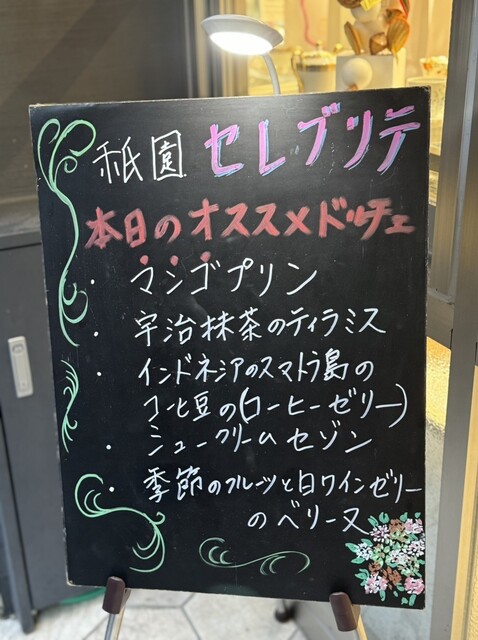 祇園 セレブリテ
本日のオススメドルチェ
・マンゴプリン
・宇治抹茶のティラミス
・インドネシアのスマトラ島の
コーヒ豆の(コーヒーゼリー)
・シュークリームセゾン
・季節のフルーツと白ワインゼリー
のベリーヌ